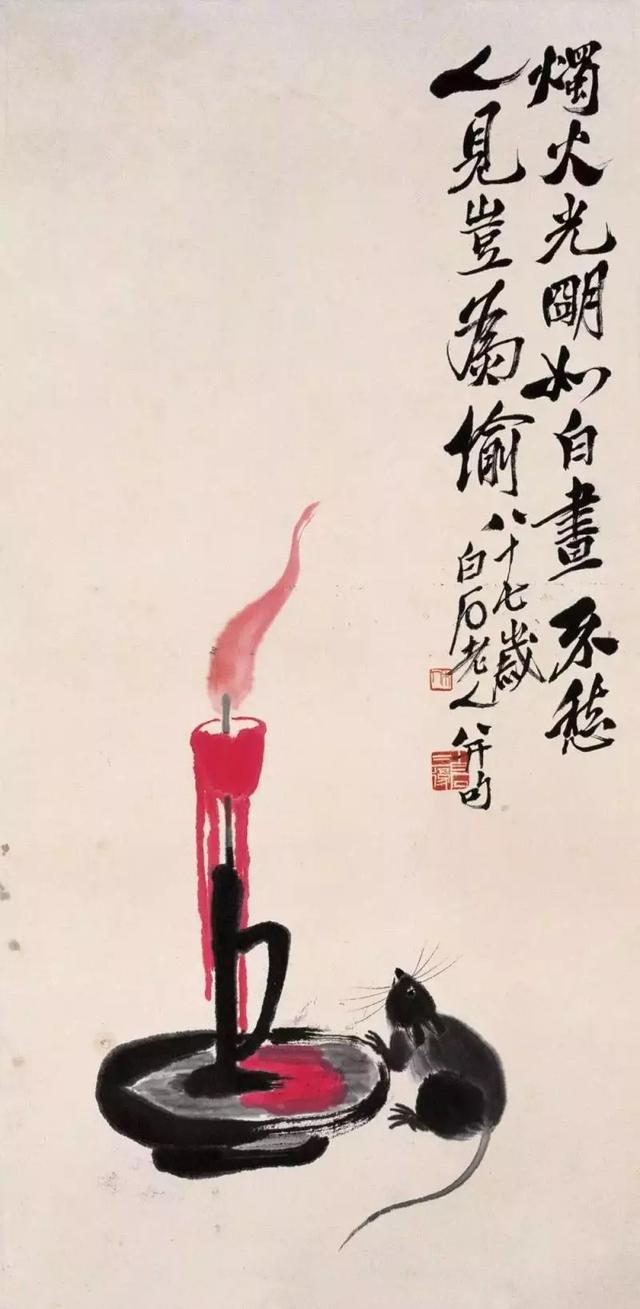 燭火光朙如白晝不愁
人見豈為偷
八十七歲
白石老人并句